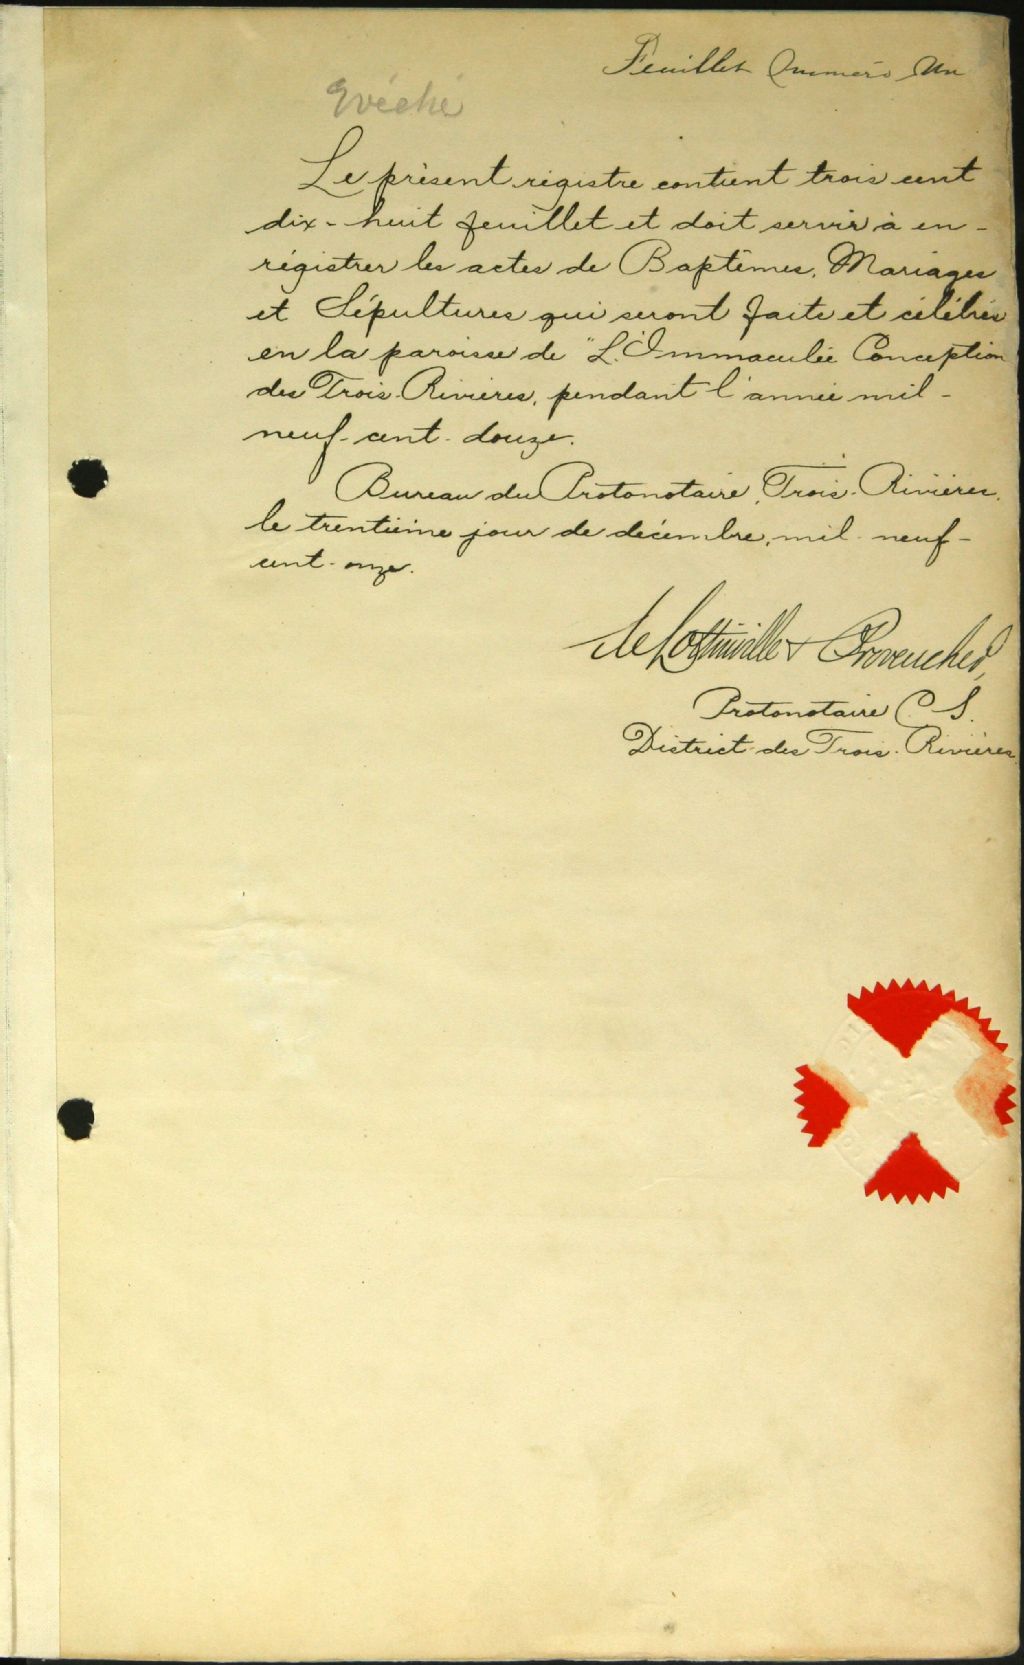 Feuillet Numéro Un
Evéché
Le présent régistre contient trois cent
dix-huit feuillet et doit servir à en-
régistrer les actes de Baptêmes, Mariages
et Sépultures qui seront faits et célébrés
en la paroisse de "L'Immaculée Conception
des Trois-Rivières, pendant l'année mil-
neuf-cent-douze.
Bureau du Protonotaire, Trois-Rivières,
le trentième jour de décembre, mil-neuf-
cent-onze.
de Lottinville & Provencher,
Protonotaire C. S.
District des Trois-Rivières